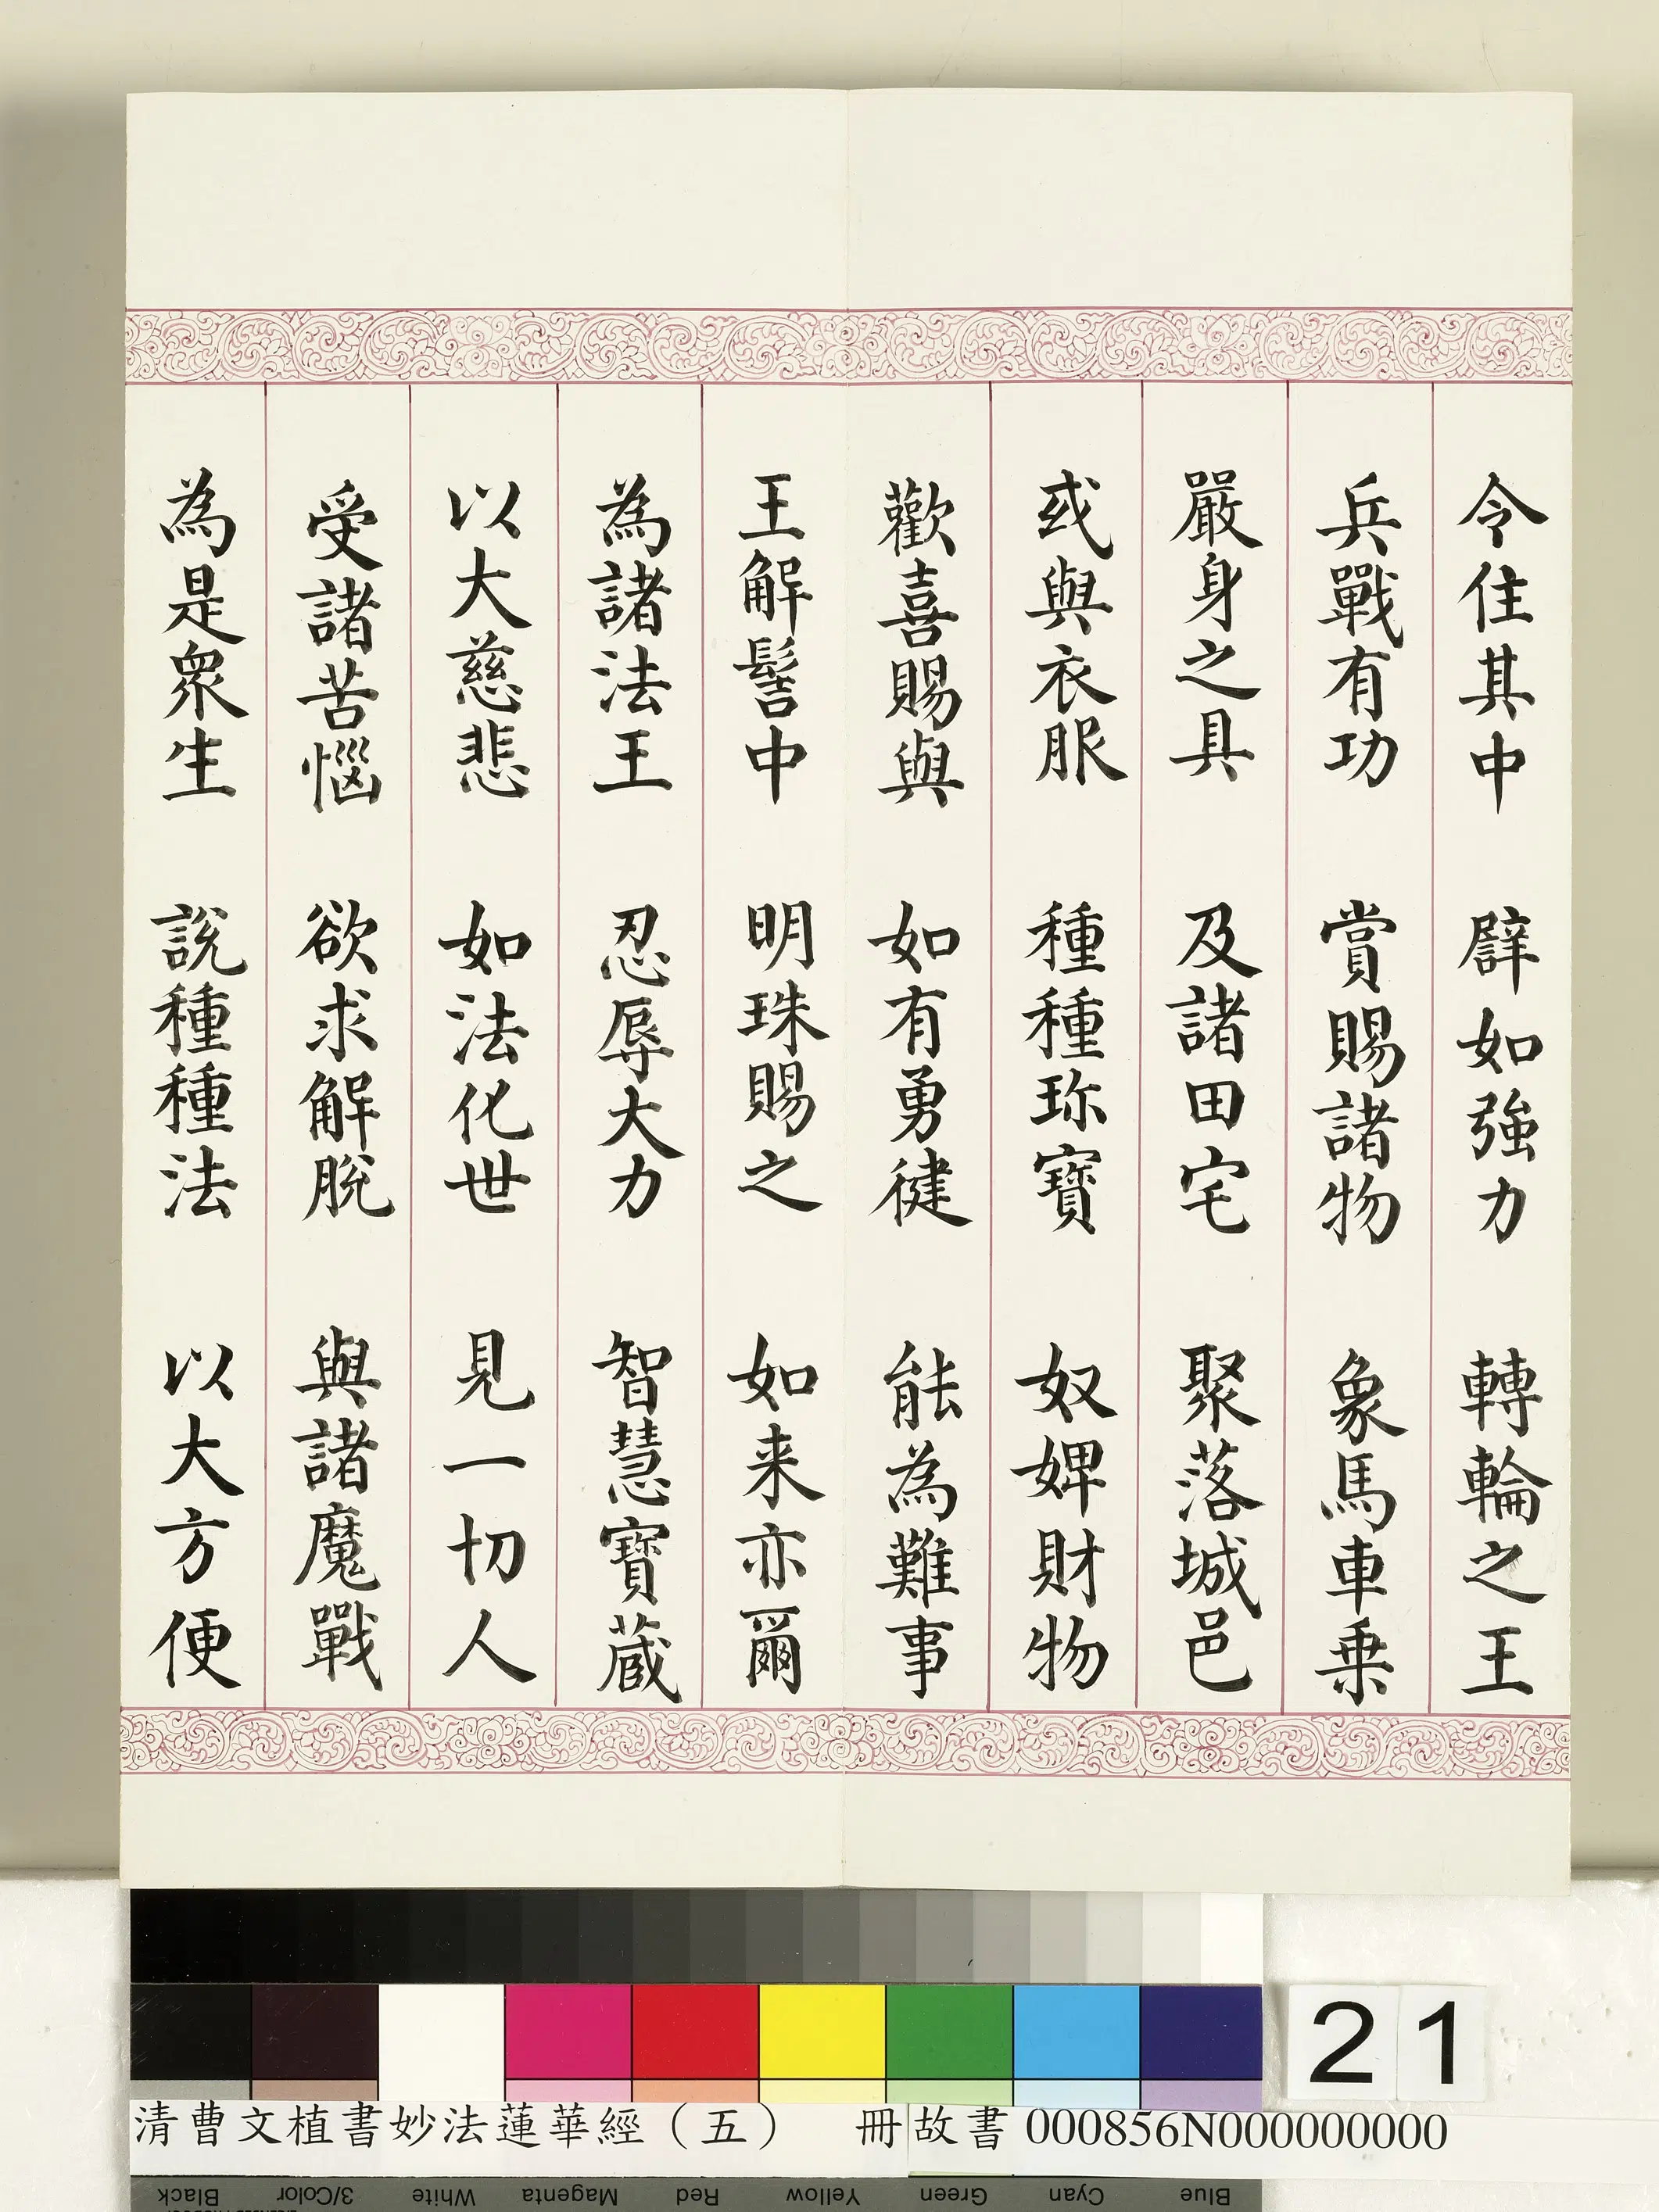 令住其中 譬如強力 轉輪之王
兵戰有功 賞賜諸物 象馬車乗
嚴身之具 及諸田宅 聚落城邑
或與衣服 種種珎寶 奴婢財物
歡喜賜與 如有勇健 能為難事
王解髻中 明珠賜之 如来亦爾
為諸法王 忍辱大力 智慧寶蔵
以大慈悲 如法化世 見一切人
受諸苦惱 欲求解脫 與諸魔戰
為是衆生 說種種法 以大方便
21
清曹文植書妙法蓮華經（五） 冊 故書 000856N000000000
Black 3/Color White Magenta Red Yellow Green Cyan Blue